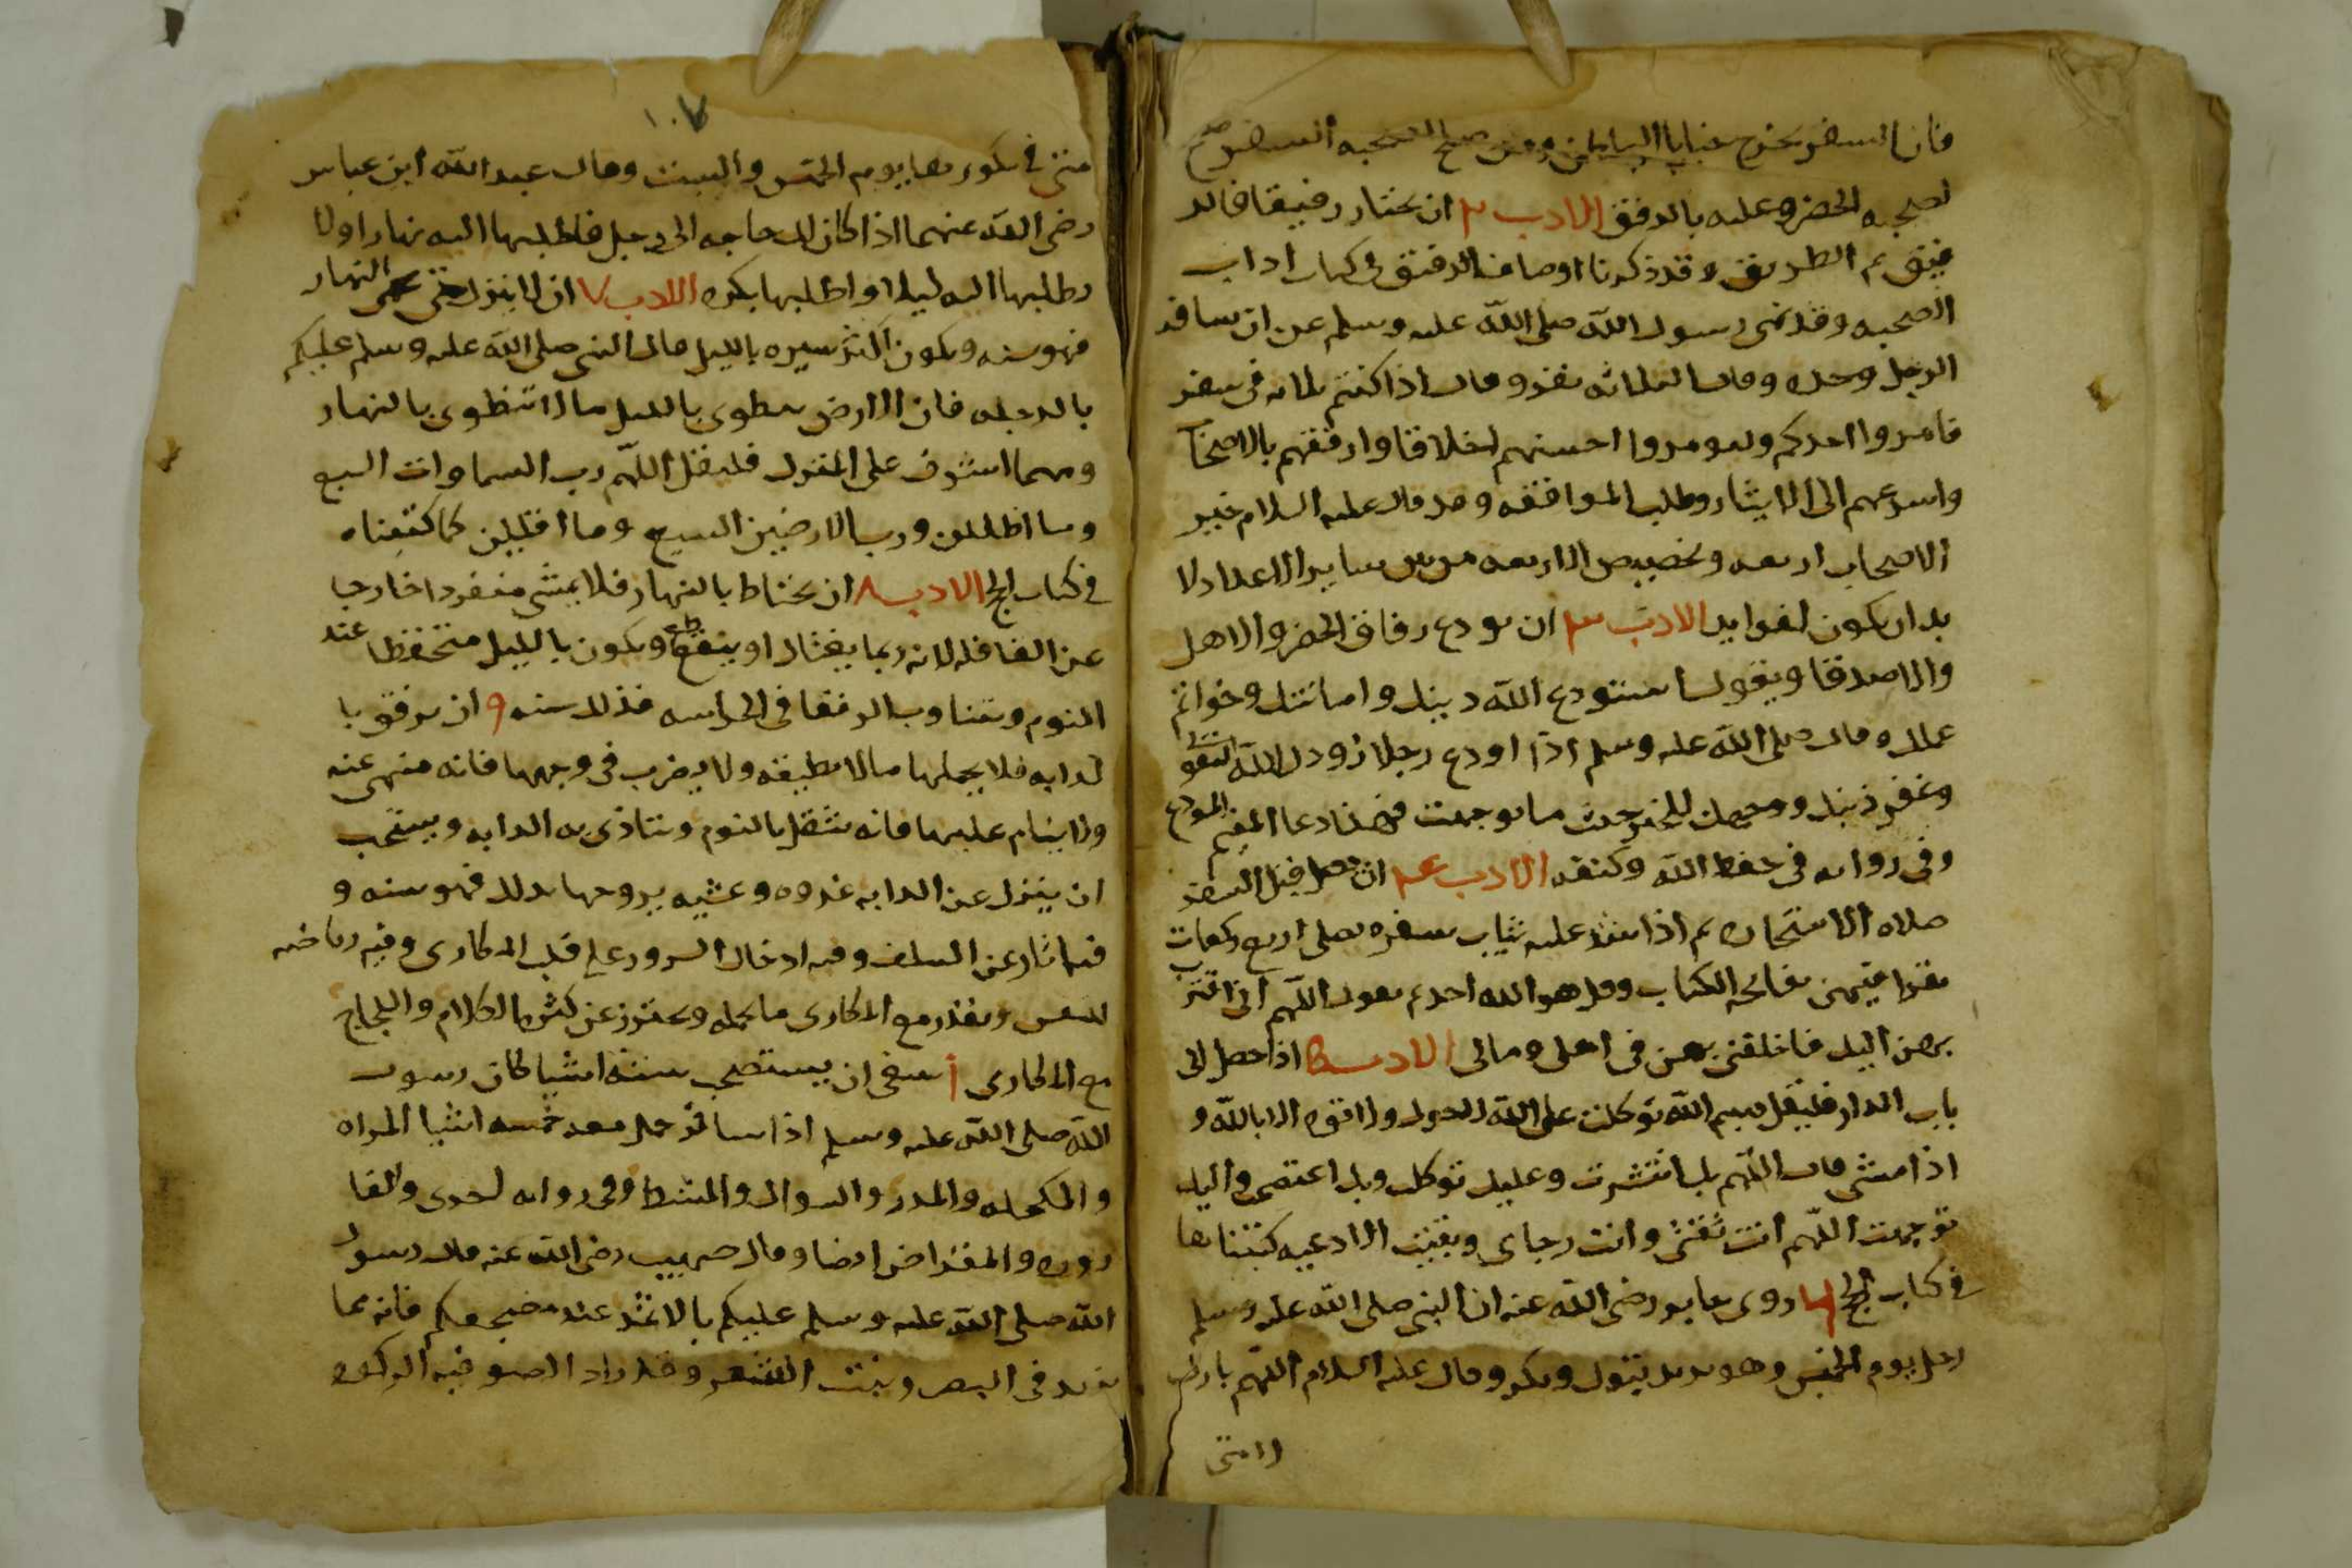 فان السفر يخرج خبايا الباطن ومن صلح لصحبه السفر صلح
لصحبه الحضر وعليه بالرفق الادب ٢ ان يختار رفيقا فالر
فيق ثم الطريق وقد ذكرنا اوصاف الرفيق في كتاب اداب
الصحبه وقد نهى رسول الله صلى الله عليه وسلم عن ان يسافر
الرجل وحده وقال الثلاثه نفر وقال اذا كنتم ثلاثه في سفر
فامروا احدكم وليومروا احسنهم اخلاقا وارفقهم بالاصحاب
واسرعهم الى الايثار وطلب الموافقه وقد قال عليه السلام خير
الاصحاب اربعه وتخصيص الاربعه من بين ساير الاعداد لا
بد ان يكون لفوايد الادب ٣ ان يودع رفاق الحضر والاهل
والاصدقا ويقول استودع الله دينك وامانتك وخواتم
عملك وقال صلى الله عليه وسلم اذا اودع رجلا زودك الله التقوى
وغفر ذنبك ووجهك للخير حيث ما توجهت فهذا دعا المقيم المودع
وفي روايه في حفظ الله وكنفه الادب ٤ ان يصلي قبل السفر
صلاه الاستخاره ثم اذا شد عليه ثياب سفره يصلي اربع ركعات
يقرا فيهن بفاتحه الكتاب وقل هو الله احد ثم يقول اللهم اني اتقرب
بهن اليك فاخلفني بهن في اهلي ومالي الادب ٥ اذا حصل الى
باب الدار فليقل بسم الله توكلت على الله لا حول ولا قوه الا بالله و
اذا مشى قال اللهم بك انتشرت وعليك توكلت وبك اعتصمت واليك
توجهت اللهم انت ثقتي وانت رجاي وبقيت الادعيه كتبناها
في كتاب الحج ٦ روى جابر رضى الله عنه ان النبي صلى الله عليه وسلم
رحل يوم الخميس وهو يريد تبوك وبكر وقال عليه السلام اللهم بارك
لامتي
١٠٧
متي في بكورها يوم الخميس والسبت وقال عبد الله ابن عباس
رضى الله عنهما اذا كان لك حاجه الى رجل فاطلبها اليه نهارا ولا
تطلبها اليه ليلا واطلبها بكره الادب ٧ ان لا ينزل حتى يحمى النهار
فهو سنه ويكون اكثر سيره بالليل قال النبي صلى الله عليه وسلم عليكم
بالدجله فان الارض تطوى بالليل ما لا تنطوى بالنهار
ومهما اشرف على المنزل فليقل اللهم رب السماوات السبع
وما اظللن ورب الارضين السبع وما اقللن كما كتبناه
في كتاب الحج الادب ٨ ان يحتاط بالنهار فلا يمشي منفردا خارجا
عن القافله لانه ربما يغتال او ينقطع ويكون بالليل متحفظا عند
النوم ويتناوب الرفقا في الحراسه فذلك سنه ٩ ان يرفق با
لدابه فلا يحملها مالا تطيقه ولا يضرب في وجهها فانه منهى عنه
ولا ينام عليها فانه يثقل بالنوم وتتاذى به الدابه ويستحب
ان ينزل عن الدابه غدوه وعشيه يروحها بذلك فهو سنه و
فيه اثار عن السلف وفيه ادخال السرور على قلب المكاري وفيه رياضه
للنفس ويقدر مع المكاري ما يحمله ويحترز عن كثره الكلام واللجاج
مع المكاري ١٠ ينبغي ان يستصحب سته اشيا كان رسول
الله صلى الله عليه وسلم اذا سافر حمل معه خمسه اشيا المراه
والمكحله والمدر والسواك والمشط وفي روايه اخرى والقا
روره والمقراض ايضا وقال صهيب رضى الله عنه قال رسول
الله صلى الله عليه وسلم عليكم بالاثمد عند مضجعكم فانه مما
يزيد في البصر وينبت الشعر وقد زاد الصوفيه الركوه